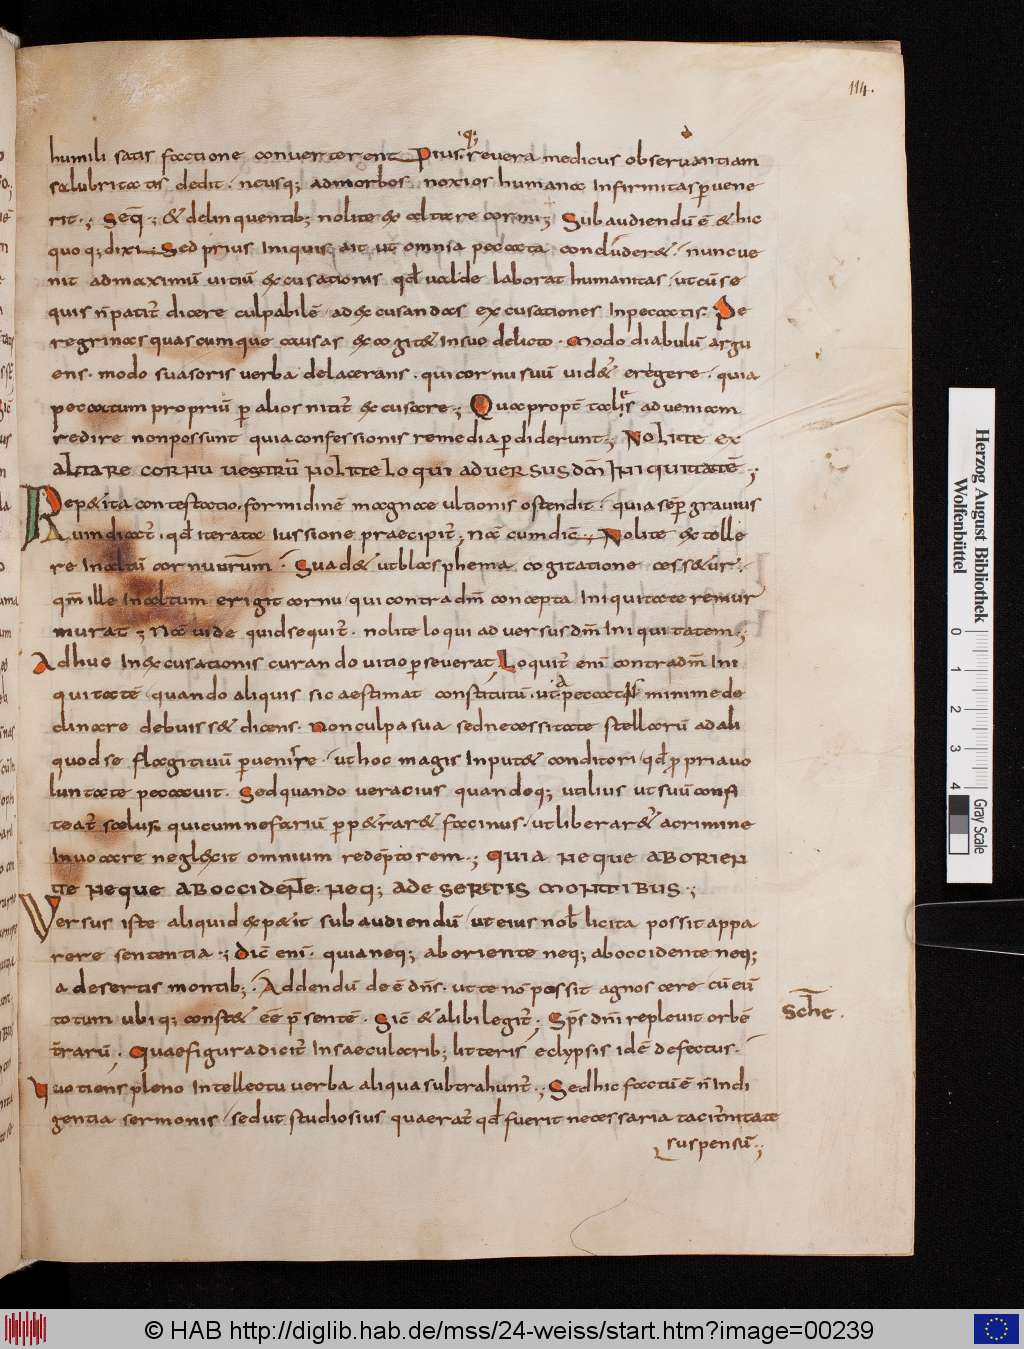 114.
humili satis factione converterent. Pius q; revera medicus observantiam
salubritatis dedit. neusq; admorbos noxios humana infirmitas ꝑvene
rit.; Seq̄.; & delinquentib; nolite exaltare cornu; Subaudiendū ē & hic
quoq; dixi. Sed prius iniquis ait ut omnia peccata concluderet. nuncve
nit admaximū vitiū excusationis qđ valde laborat humanitas ut cū se
quis n̄ patit̄ dicere culpabilē ad excusandas excusationes in peccatis. Pe
regrinas quascumque causas excogitet in suo delicto. Modo diabulū argu
ens. modo suasoris verba delacerans. qui cornu suū videt̄ erigere. quia
peccatum propriū ꝑ alios nitit̄ excusare.; Quapropt̄ talis ad veniam
redire non possunt quia confessionis remedia ꝑdiderunt.; Nolite ex
altare cornu vestrū nolite loqui adversus dm̄ iniquitatē.;
Repetita contestatio. formidinē magnae ultionis ostendit. quia sēp gravius
cum dicat̄. qđ iterata iussione praecipit̄; nā cum dic̄.; Nolite extolle
re in altū cornu vr̄um. Suadet ut blasphema cogitatione cessetur.
qm̄ ille in altum erigit cornu qui contra dm̄ concepta iniquitate remur
murat; Nā vide quid sequit̄. nolite loqui adversus dm̄ iniquitatem.;
Adhuc in excusationis curando vitio perseverat. Loquit̄ eni contra dm̄ ini
quitatē quando aliquis sic aestimat constitutū. ut a peccatis minime de
clinare debuisset dicens. Non culpa sua sed necessitate stellarū ad ali
quod se flagitiū ꝑvenire. ut hoc magis inputet conditori qđ propria vo
luntate peccavit. Sed quando veracius quandoq; utilius ut suū confi
teat̄ scelus. quicum nefariū ꝑpetraret facinus. ut liberaret̄ a crimine
invocare neglexit omnium redemptorem.; Quia neque ab orien
te neque ab occidente. neq; a desertis montibus.;
Versus iste aliquid expetit subaudiendū ut eius nob̄ licita possit appa
rere sententia.; Dic̄ eni. quia neq; ab oriente neq; ab occidente neq;
a desertis montib;. Addendū deē dn̄s. ut te nō possit agnoscere cū eū
totum ubiq; constet eē p̄sentē. Sic̄ & alibi legit̄. Sp̄s dn̄i replevit orbē
Sche.
t̄rarū. Quae figura dicit̄ in saecularib; litteris eclypsis idē defectus.
Quotiens pleno intellectu verba aliqua subtrahunt̄.; Sed hic factū ē n̄ indi
gentia sermonis sed ut studiosius quaerat̄ qđ fuerit necessaria taciturnitate
suspensū.;
Herzog August Bibliothek
Wolfenbüttel
0 1 2 3 4
Gray Scale
© HAB http://diglib.hab.de/mss/24-weiss/start.htm?image=00239